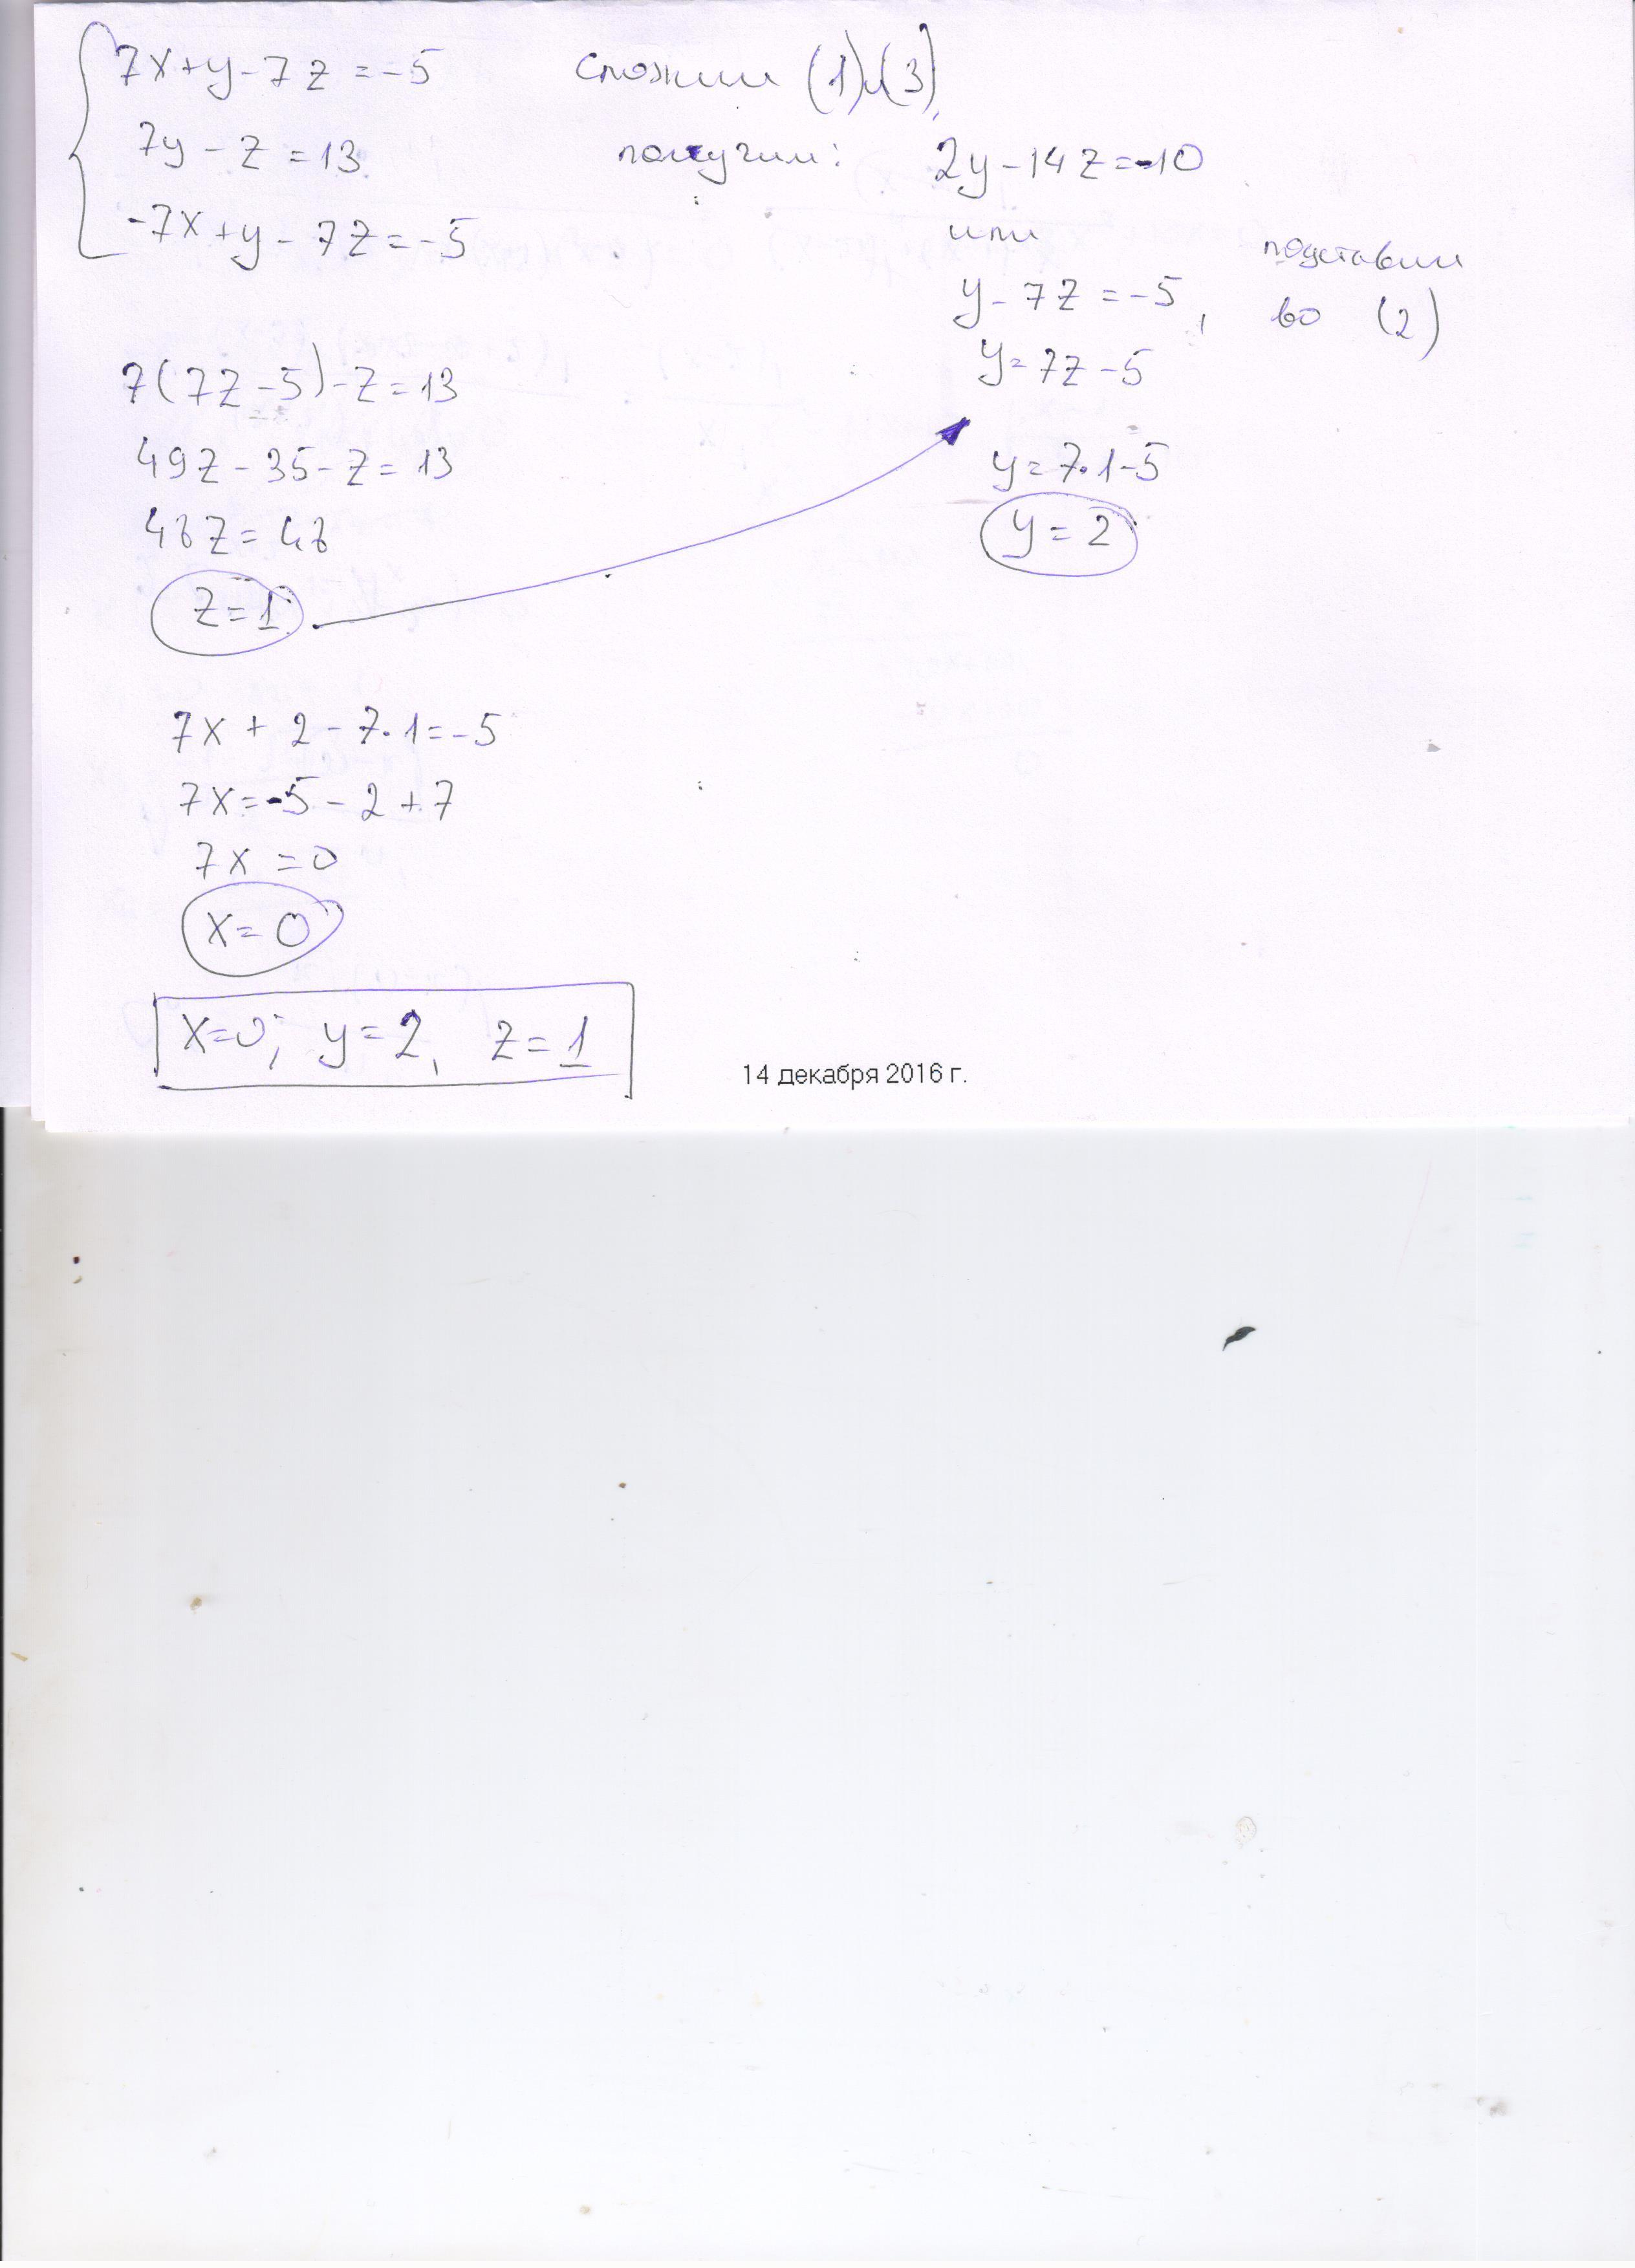 7x+y-7z=-5 Сложим (1)и(3),
7y-z=13 получим: 2y-14z=-10
-7x+y-7z=-5 или
подставим
y-7z=-5, во (2)
y=7z-5
7(7z-5)-z=13
49z-35-z=13
48z=48
z=1
y=7·1-5
y=2
7x+2-7·1=-5
7x=-5-2+7
7x=0
x=0
x=0; y=2, z=1
14 декабря 2016 г.